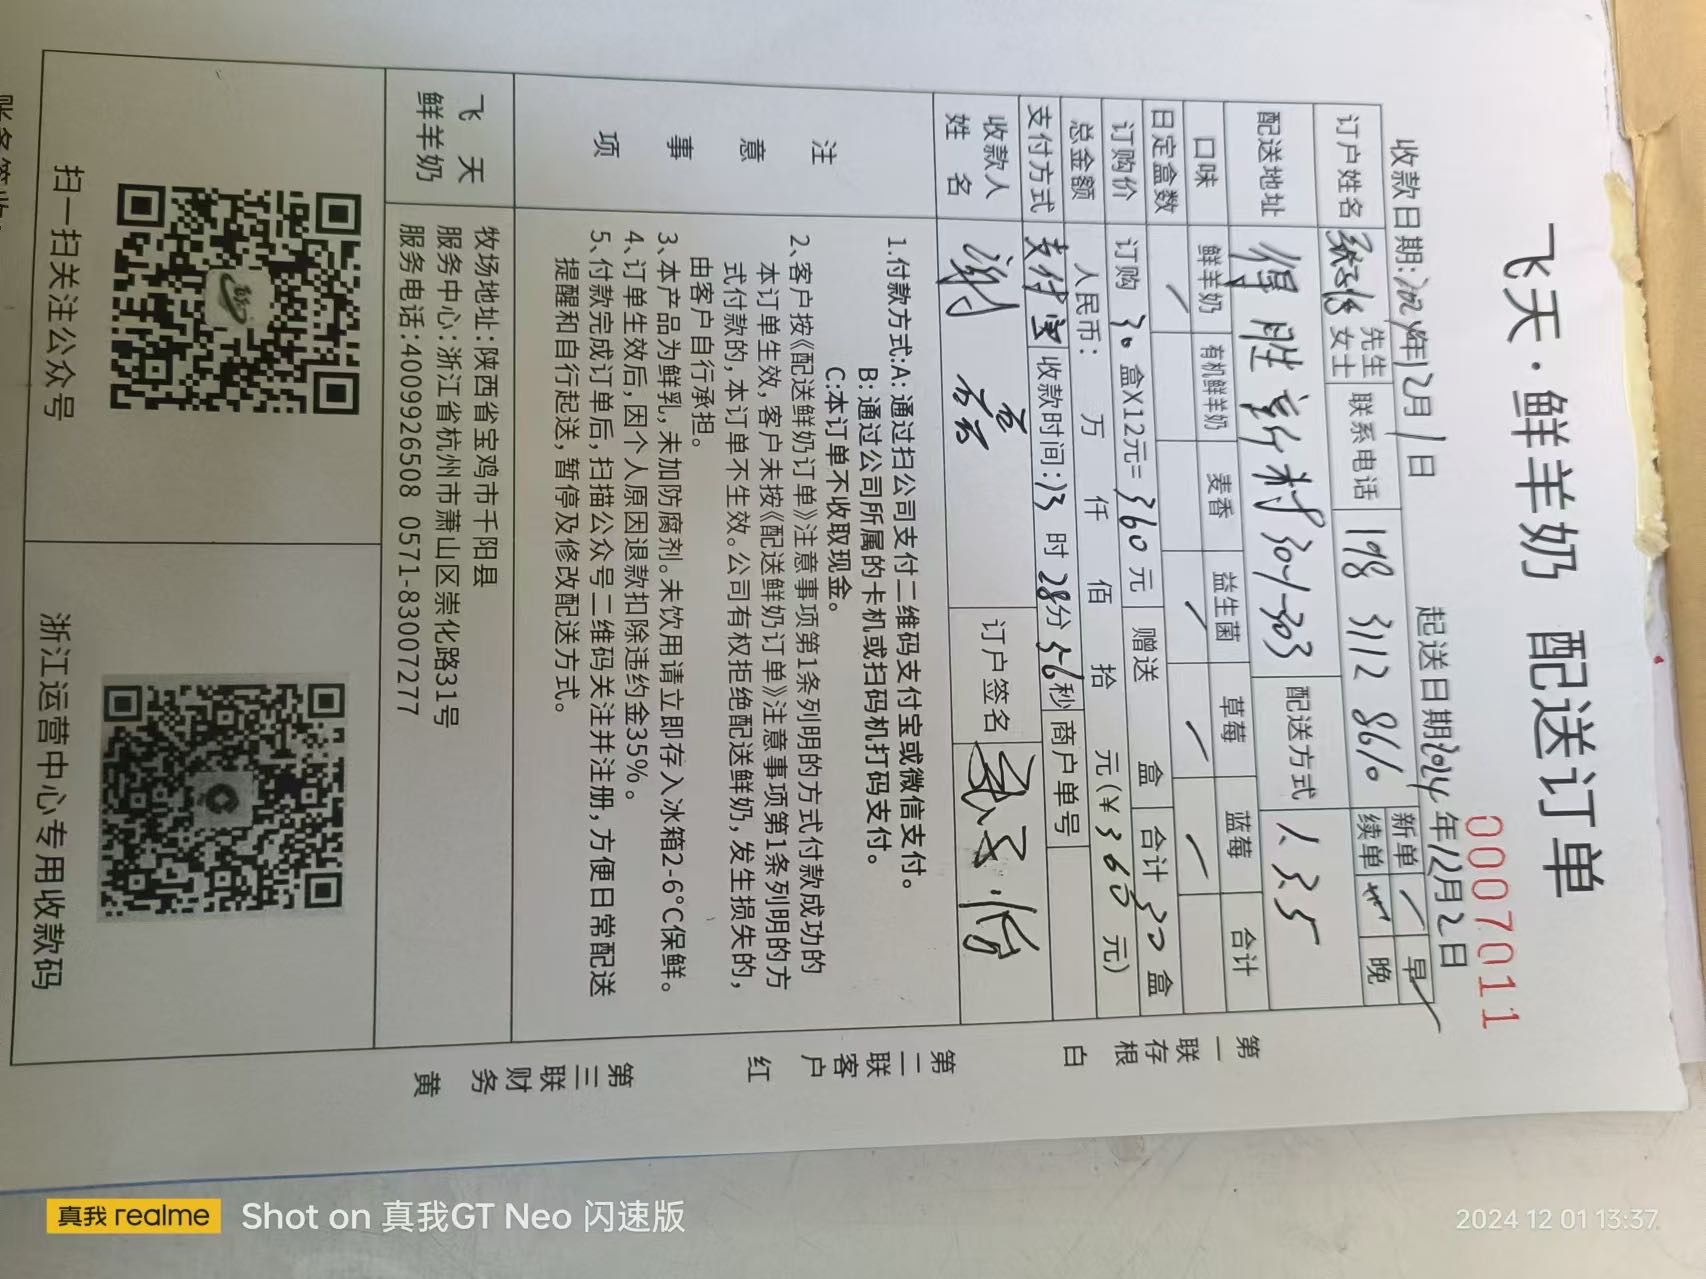 飞天·鲜羊奶 配送订单
0007011
收款日期:2024年12月1日 起送日期2024年12月2日
订户姓名 先生 女士 联系电话 198 3112 8610 新单 早
续单 晚
配送地址 得胜新村301-303 配送方式 1.3.5
口味 鲜羊奶 有机鲜羊奶 麦香 益生菌 草莓 蓝莓 合计
日定盒数
订购价 订购 30 盒X12元= 360 元 赠送 盒 合计 30 盒
总金额 人民币: 万 仟 佰 拾 元(¥ 360 元)
支付方式 支付宝 收款时间:13 时 28分 56秒 商户单号
收款人 姓名 谢 订户签名
注意事项
1.付款方式:A:通过扫公司支付二维码支付宝或微信支付。
B:通过公司所属的卡机或扫码机打码支付。
C:本订单不收取现金。
2、客户按《配送鲜奶订单》注意事项第1条列明的方式付款成功的
本订单生效,客户未按《配送鲜奶订单》注意事项第1条列明的方
式付款的,本订单不生效。公司有权拒绝配送鲜奶,发生损失的,
由客户自行承担。
3、本产品为鲜乳,未加防腐剂。未饮用请立即存入冰箱2-6°C保鲜。
4、订单生效后,因个人原因退款扣除违约金35%。
5、付款完成订单后,扫描公众号二维码关注并注册,方便日常配送
提醒和自行起送,暂停及修改配送方式。
飞天
鲜羊奶
牧场地址:陕西省宝鸡市千阳县
服务中心:浙江省杭州市萧山区崇化路31号
服务电话:4009926508 0571-83007277
扫一扫关注公众号
浙江运营中心专用收款码
第一联存根 白
第二联客户 红
第三联财务 黄
真我 realme Shot on 真我GT Neo 闪速版
2024 12 01 13:37